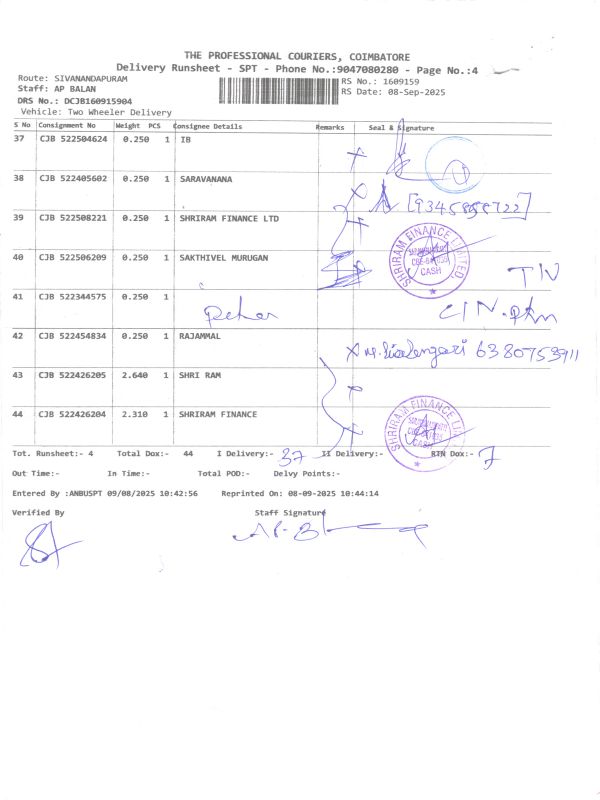 THE PROFESSIONAL COURIERS, COIMBATORE
Delivery Runsheet - SPT - Phone No.:9047080280 - Page No.:4
Route: SIVANANDAPURAM RS No.: 1609159
Staff: AP BALAN RS Date: 08-Sep-2025
DRS No.: DCJB160915904
Vehicle: Two Wheeler Delivery
S No Consignment No Weight PCS Consignee Details Remarks Seal & Signature
37 CJB 522504624 0.250 1 IB
38 CJB 522405602 0.250 1 SARAVANANA
[9345858722]
39 CJB 522508221 0.250 1 SHRIRAM FINANCE LTD
SHRIRAM FINANCE LIMITED
CASH
40 CJB 522506209 0.250 1 SAKTHIVEL MURUGAN
41 CJB 522344575 0.250 1
42 CJB 522454834 0.250 1 RAJAMMAL
6380753911
43 CJB 522426205 2.640 1 SHRI RAM
44 CJB 522426204 2.310 1 SHRIRAM FINANCE
SHRIRAM FINANCE
CASH
Tot. Runsheet:- 4 Total Dox:- 44 I Delivery:- 37 II Delivery:- RTN Dox:- 7
Out Time:- In Time:- Total POD:- Delvy Points:-
Entered By :ANBUSPT 09/08/2025 10:42:56 Reprinted On: 08-09-2025 10:44:14
Verified By Staff Signature